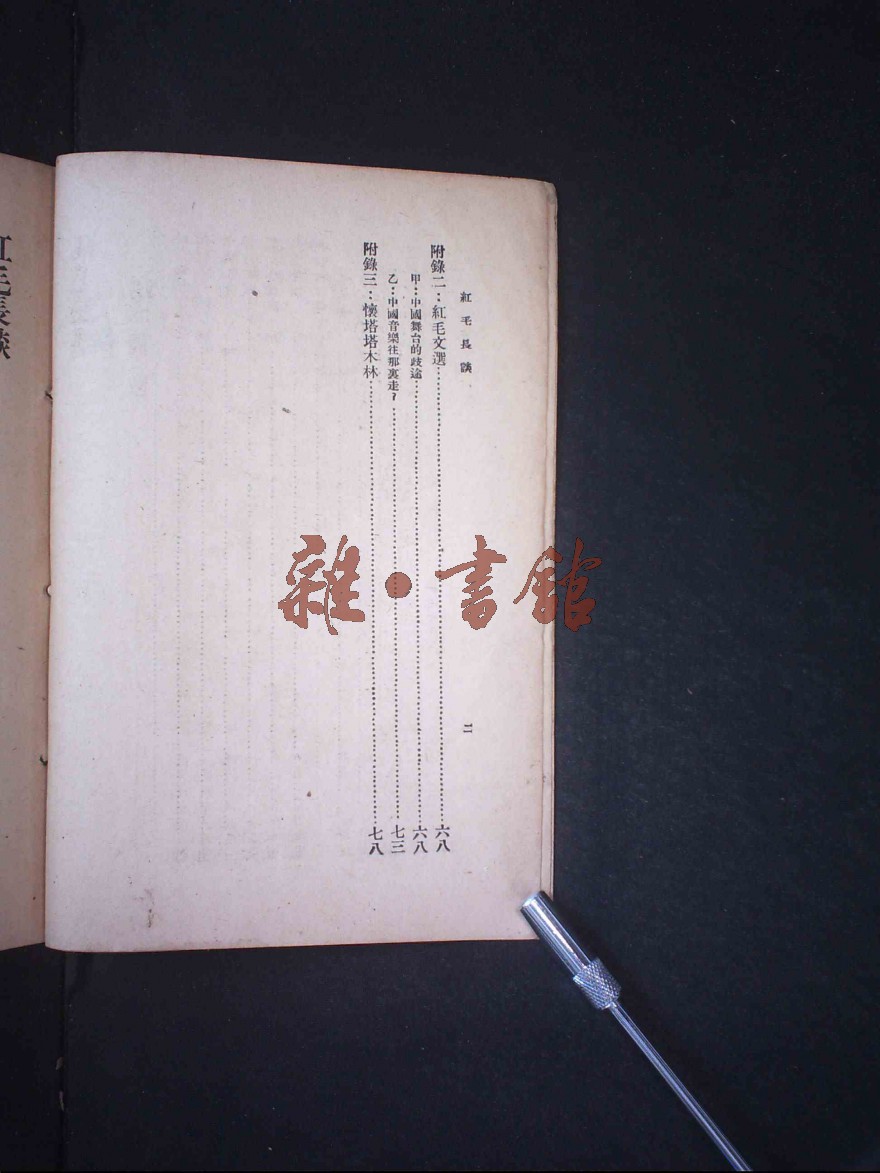 紅毛長談
二
附錄二：紅毛文選……六八
甲：中國舞台的歧途……六八
乙：中國音樂往那裏走？……七三
附錄三：懷塔塔木林……七八
紅毛長談
雜·書館